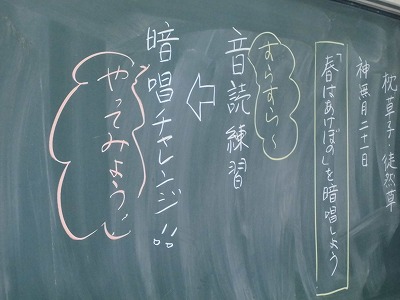 枕草子・徒然草
神無月二十一日
「春はあけぼの」を暗唱しよう
すらすら～
音読練習
⇦
暗唱チャレンジ!!
やってみよう!